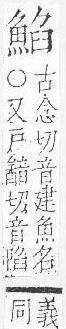 䱤
古念切音建魚名
○又戶切音陷
義
同